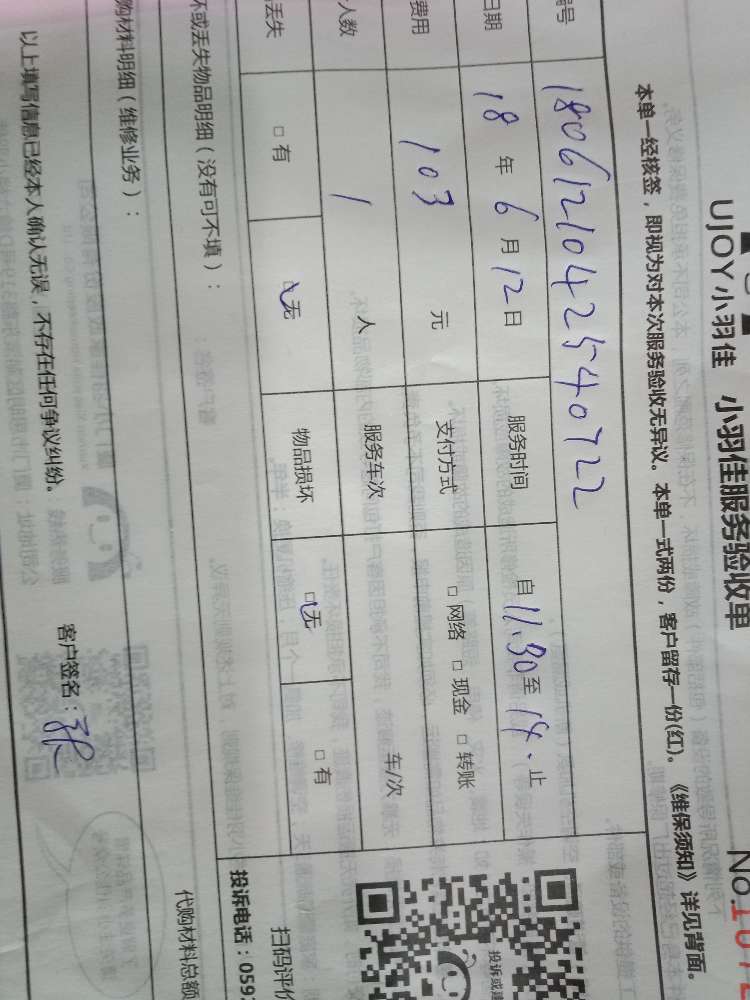 UJOY小羽佳 小羽佳服务验收单
No.
本单一经核签，即视为对本次服务验收无异议。本单一式两份，客户留存一份(红)。《维保须知》详见背面。
编号 180612104254 0722
日期 18 年 6 月 12 日 服务时间 自 11.30 至 14. 止
费用 103 元 支付方式 □ 网络 □ 现金 □ 转账
人数 1 人 服务车次 车/次
丢失 □ 有 □ 无 物品损坏 □ 无 □ 有
坏或丢失物品明细（没有可不填）：
扫码评价
投诉或建
投诉电话：059
购材料明细（维修业务）：
代购材料总额
以上填写信息已经本人确认无误，不存在任何争议纠纷。
客户签名：张